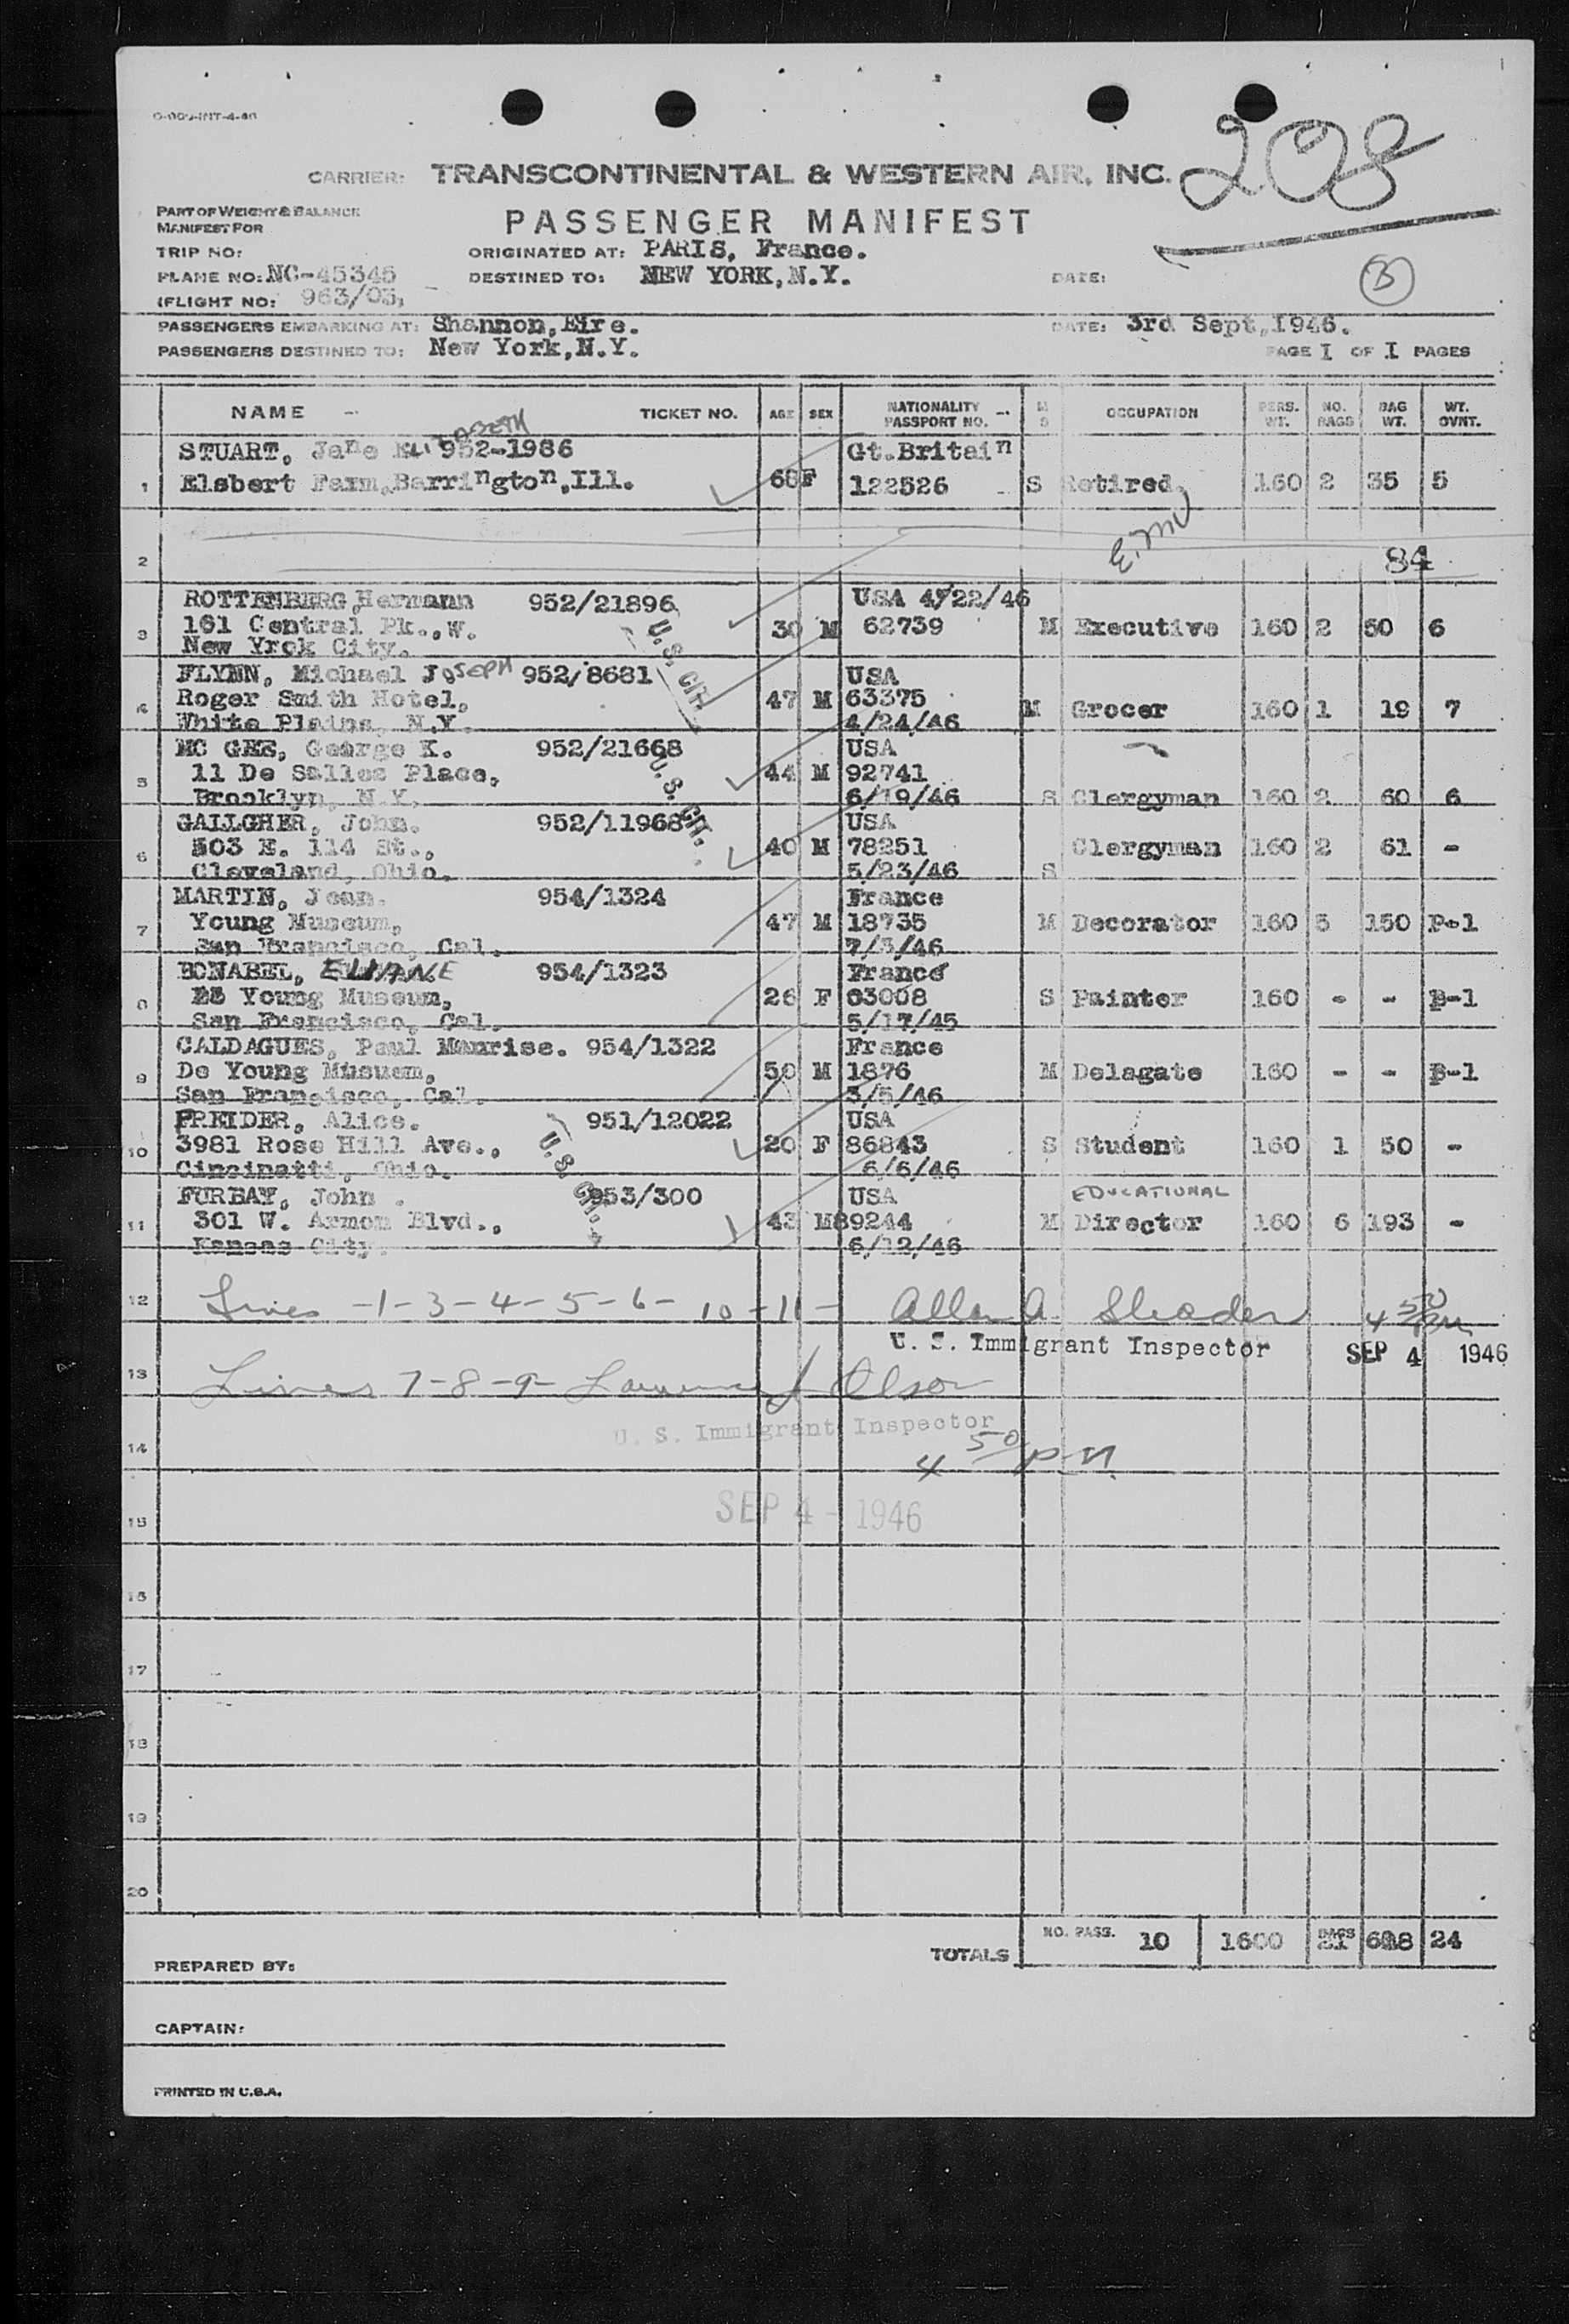 O-009-INT-4-46
208
CARRIER: TRANSCONTINENTAL & WESTERN AIR, INC.
PART OF WEIGHT & BALANCE
MANIFEST FOR
PASSENGER MANIFEST
TRIP NO: ORIGINATED AT: PARIS, France.
PLANE NO: NC-45345 DESTINED TO: NEW YORK,N.Y. DATE: B
(FLIGHT NO: 963/03,
PASSENGERS EMBARKING AT: Shannon,Eire. DATE: 3rd Sept,1946.
PASSENGERS DESTINED TO: New York,N.Y. PAGE I OF I PAGES
NAME TICKET NO. AGE SEX NATIONALITY PASSPORT NO. M S OCCUPATION PERS. WT. NO. BAGS BAG WT. WT. OVNT.
STUART, Jane 952-1986 Gt.Britain
1 Elsbert Farm,Barrington,Ill. 68 F 122526 S Retired. 160 2 35 5
2 84
ROTTENBERG,Hermann 952/21896 USA 4/22/46
3 161 Central Pk.,W. 30 M 62739 M Executive 160 2 50 6
New Yrok City. U.S. CIT.
FLYNN, Michael JOSEPH 952/8681 USA
4 Roger Smith Hotel, 47 M 63375 M Grocer 160 1 19 7
White Plains, N.Y. 4/24/46
MC GEE, George K. 952/21668 USA
5 11 De Salles Place, 44 M 92741
Brooklyn, N.Y. U.S. CIT. 6/19/46 S Clergyman 160 2 60 6
GALLGHER, John. 952/11968 USA
6 503 E. 114 St., 40 M 78251 Clergyman 160 2 61 -
Cleveland, Ohio. 5/23/46 S
MARTIN, Jean. 954/1324 France
7 Young Museum, 47 M 18735 M Decorator 160 5 150 P-1
San Francisco, Cal. 7/3/46
BONABEL, ELIANE 954/1323 France
8 Young Museum, 26 F 63008 S Painter 160 - - P-1
San Francisco, Cal. 5/17/45
CALDAGUES, Paul Maurise. 954/1322 France
9 De Young Musuem, 50 M 1876 M Delagate 160 - - P-1
San Francisco, Cal. 3/5/46
FREIDER, Alice. 951/12022 USA
10 3981 Rose Hill Ave., 20 F 86843 S Student 160 1 50 -
Cincinatti, Ohio. U.S. CIT. 6/6/46
FURBAY, John . 953/300 USA EDUCATIONAL
11 301 W. Armom Blvd., 43 M 89244 M Director 160 6 193 -
Kansas City. 6/12/46
12 Lines -1-3-4-5-6-10-11- Allan A. 4 50 pm
U. S. Immigrant Inspector SEP 4 1946
13 Lines 7-8-9- Lawrence J Olson
14 U. S. Immigrant Inspector
4 50 PM
15 SEP 4 - 1946
16
17
18
19
20
TOTALS NO. PASS. 10 1600 BAGS 21 618 24
PREPARED BY:
CAPTAIN:
PRINTED IN U.S.A.